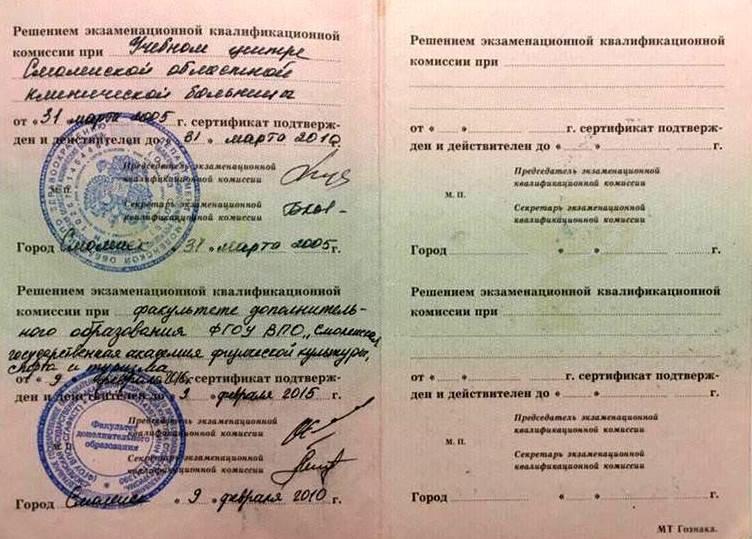 Решением экзаменационной квалификационной
комиссии при Учебном центре
Смоленской областной
клинической больница
от «31 марта 2005 г. сертификат подтверж-
ден и действителен до «31 » марта 2010 г.
Председатель экзаменационной
квалификационной комиссии
М. П.
Секретарь экзаменационной
квалификационной комиссии
Город Смоленск «31 » марта 2005 г.
Решением экзаменационной квалификационной
комиссии при факультете дополнитель-
ного образования ФГОУ ВПО „Смоленская
государственная академия физической культуры,
спорта и туризма
от « 9 » февраля 2010 г. сертификат подтверж-
ден и действителен до « 9 » февраля 2015 г.
Председатель экзаменационной
квалификационной комиссии
Факультет
дополнительного
образования
Секретарь экзаменационной
квалификационной комиссии
Город Смоленск « 9 » февраля 2010 г.
Решением экзаменационной квалификационной
комиссии при
от « » г. сертификат подтверж-
ден и действителен до « » г.
Председатель экзаменационной
квалификационной комиссии
М. П.
Секретарь экзаменационной
квалификационной комиссии
Город « » г.
Решением экзаменационной квалификационной
комиссии при
от « » г. сертификат подтверж-
ден и действителен до « » г.
Председатель экзаменационной
квалификационной комиссии
М. П.
Секретарь экзаменационной
квалификационной комиссии
Город « » г.
МТ Гознака.